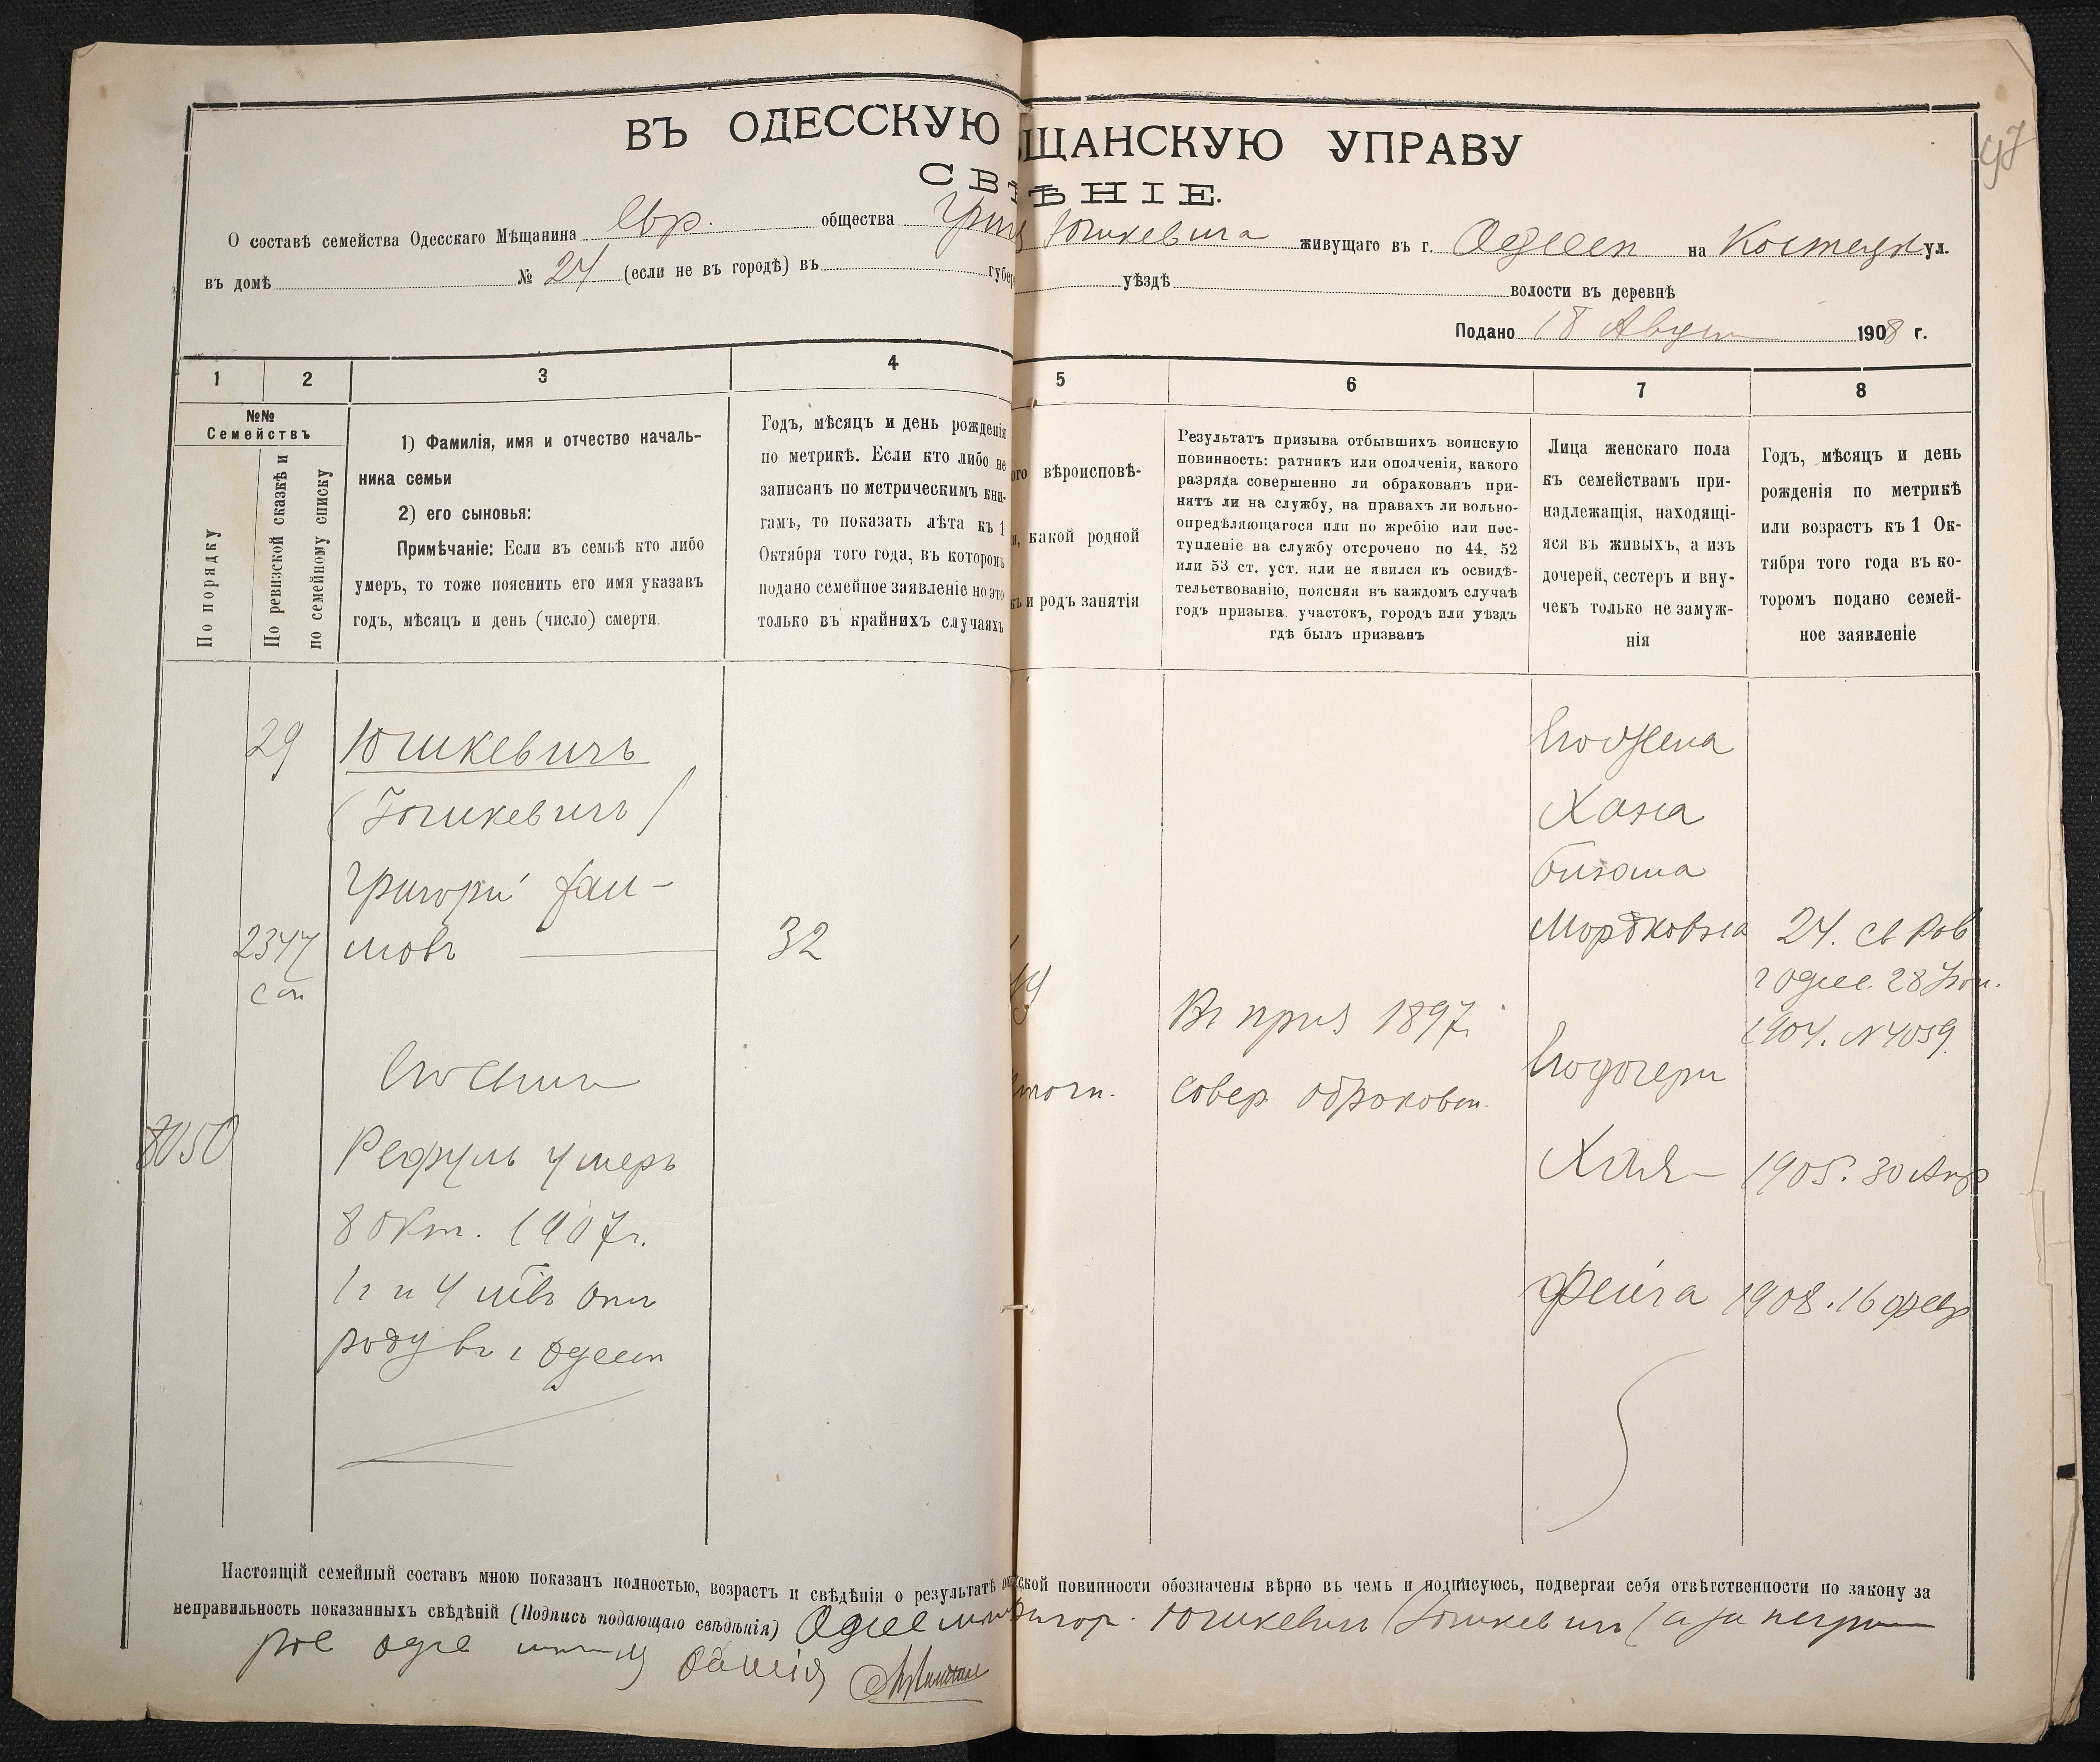 47
ВЪ ОДЕССКУЮ ЩАНСКУЮ УПРАВУ
СВѢНІЕ.
О составѣ семейства Одесскаго Мѣщанина Евр. общества Григ Юшкевича живущаго въ г. Одессѣ на Костецк ул.
въ домѣ № 24 (если не въ городѣ) въ губер уѣздѣ волости въ деревнѣ
Подано 18 Август 1908 г.
1 2 3 4 5 6 7 8
№№
Семействъ
По порядку
По ревизской сказкѣ и
по семейному списку
1) Фамилія, имя и отчество началь-
ника семьи
2) его сыновья:
Примѣчаніе: Если въ семьѣ кто либо
умеръ, то тоже пояснить его имя указавъ
годъ, мѣсяцъ и день (число) смерти.
Годъ, мѣсяцъ и день рожденія
по метрикѣ. Если кто либо не
записанъ по метрическимъ кни-
гамъ, то показать лѣта къ 1
Октября того года, въ которомъ
подано семейное заявленіе но это
только въ крайнихъ случаяхъ
ого вѣроисповѣ-
я, какой родной
къ и родъ занятія
Результатъ призыва отбывшихъ воинскую
повинность: ратникъ или ополченія, какого
разряда совершенно ли обракованъ при-
нятъ ли на службу, на правахъ ли вольно-
опредѣляющагося или по жребію или пос-
тупленіе на службу отсрочено по 44, 52
или 53 ст. уст. или не явился къ освидѣ-
тельствованію, поясняя въ каждомъ случаѣ
годъ призыва участокъ, городъ или уѣздъ
гдѣ былъ призванъ
Лица женскаго пола
къ семействамъ при-
надлежащія, находящі-
яся въ живыхъ, а изъ
дочерей, сестеръ и вну-
чекъ только незамуж-
нія
Годъ, мѣсяцъ и день
рожденія по метрикѣ
или возрастъ къ 1 Ок-
тября того года въ ко-
торомъ подано семей-
ное заявленіе
29
Юшкевичъ
(Іошкевичъ)
Григорій Хаи-
мовъ
2347
сп
32
Его сынъ
8050
Рефуль умеръ
8 Окт. 1907 г.
1 г и 4 мѣс отъ
роду въ г Одессѣ
Въ приз 1897
совер обракован.
Его жена
Хана
Бизома
Мордковна
24. св Рав
г Одес. 28 Іюн.
1904. N 4039
Его дочери
Хая 1905. 30 Апр
Фейга 1908. 16 февр
Настоящій семейный составъ мною показанъ полностью, возрастъ и свѣдѣнія о результатѣ ской повинности обозначены вѣрно въ чемъ и подписуюсь, подвергая себя отвѣтственности по закону за
неправильность показанныхъ свѣдѣній (Подпись подающаго свѣдѣнія) Одес Григор. Юшкевичъ (Іошкевичъ) а за негр